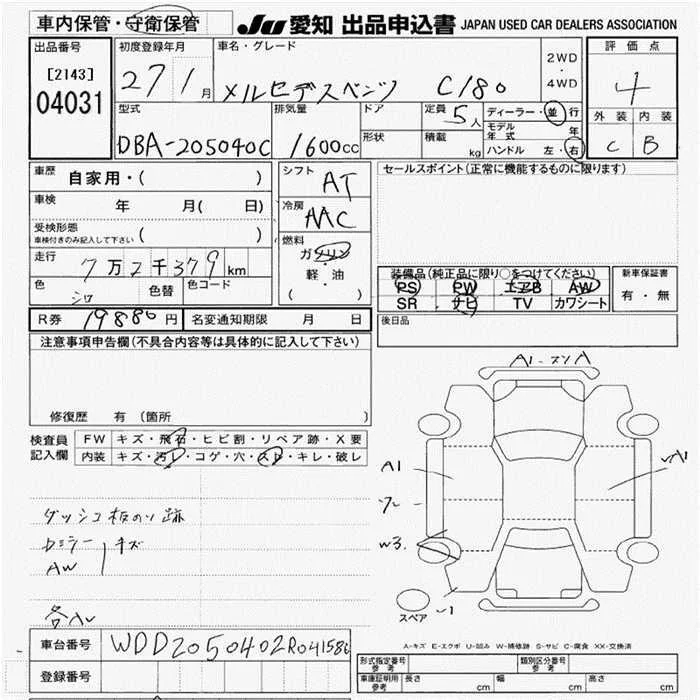 車内保管・守衛保管
JU 愛知 出品申込書 JAPAN USED CAR DEALERS ASSOCIATION
出品番号
[2143]
04031
初度登録年月
27 1月
車名・グレード
メルセデスベンツ C180
2WD
・
4WD
評価点
4
外装 内装
C B
型式
DBA-205040C
排気量
1600cc
ドア
形状
定員 5人
積載 kg
ディーラー・並 行
モデル年式 年
ハンドル 左・右
車歴 自家用・( )
車検 年 月( 日)
受検形態
車検付きのみ記入して下さい ( )
走行 7万2千379km
色 シロ 色替 色コード
シフト AT
冷房 AAC
燃料
ガソリン
軽・油
( )
セールスポイント(正常に機能するものに限ります)
装備品(純正品に限り○をつけてください)
PS PW エアB AW
SR ナビ TV カワシート
新車保証書
有・無
後日品
R券 19880円 名変通知期限 月 日
注意事項申告欄(不具合内容等は具体的に記入して下さい)
修復歴 有(箇所 )
検査員記入欄
FW キズ・飛石・ヒビ割・リペア跡・X要
内装 キズ・汚レ・コゲ・穴・スレ・キレ・破レ
ダッシュ板のり跡
Dミラー キズ
AW
A1
A1
W3
スペア
A-キズ E-エクボ U-凹み W-補修跡 S-サビ C-腐食 XX-交換済
車台番号 WDD2050402R041586
登録番号
形式指定番号 参考
類別区分番号 参考
車庫証明用 参考 長さ cm 幅 cm 高さ cm